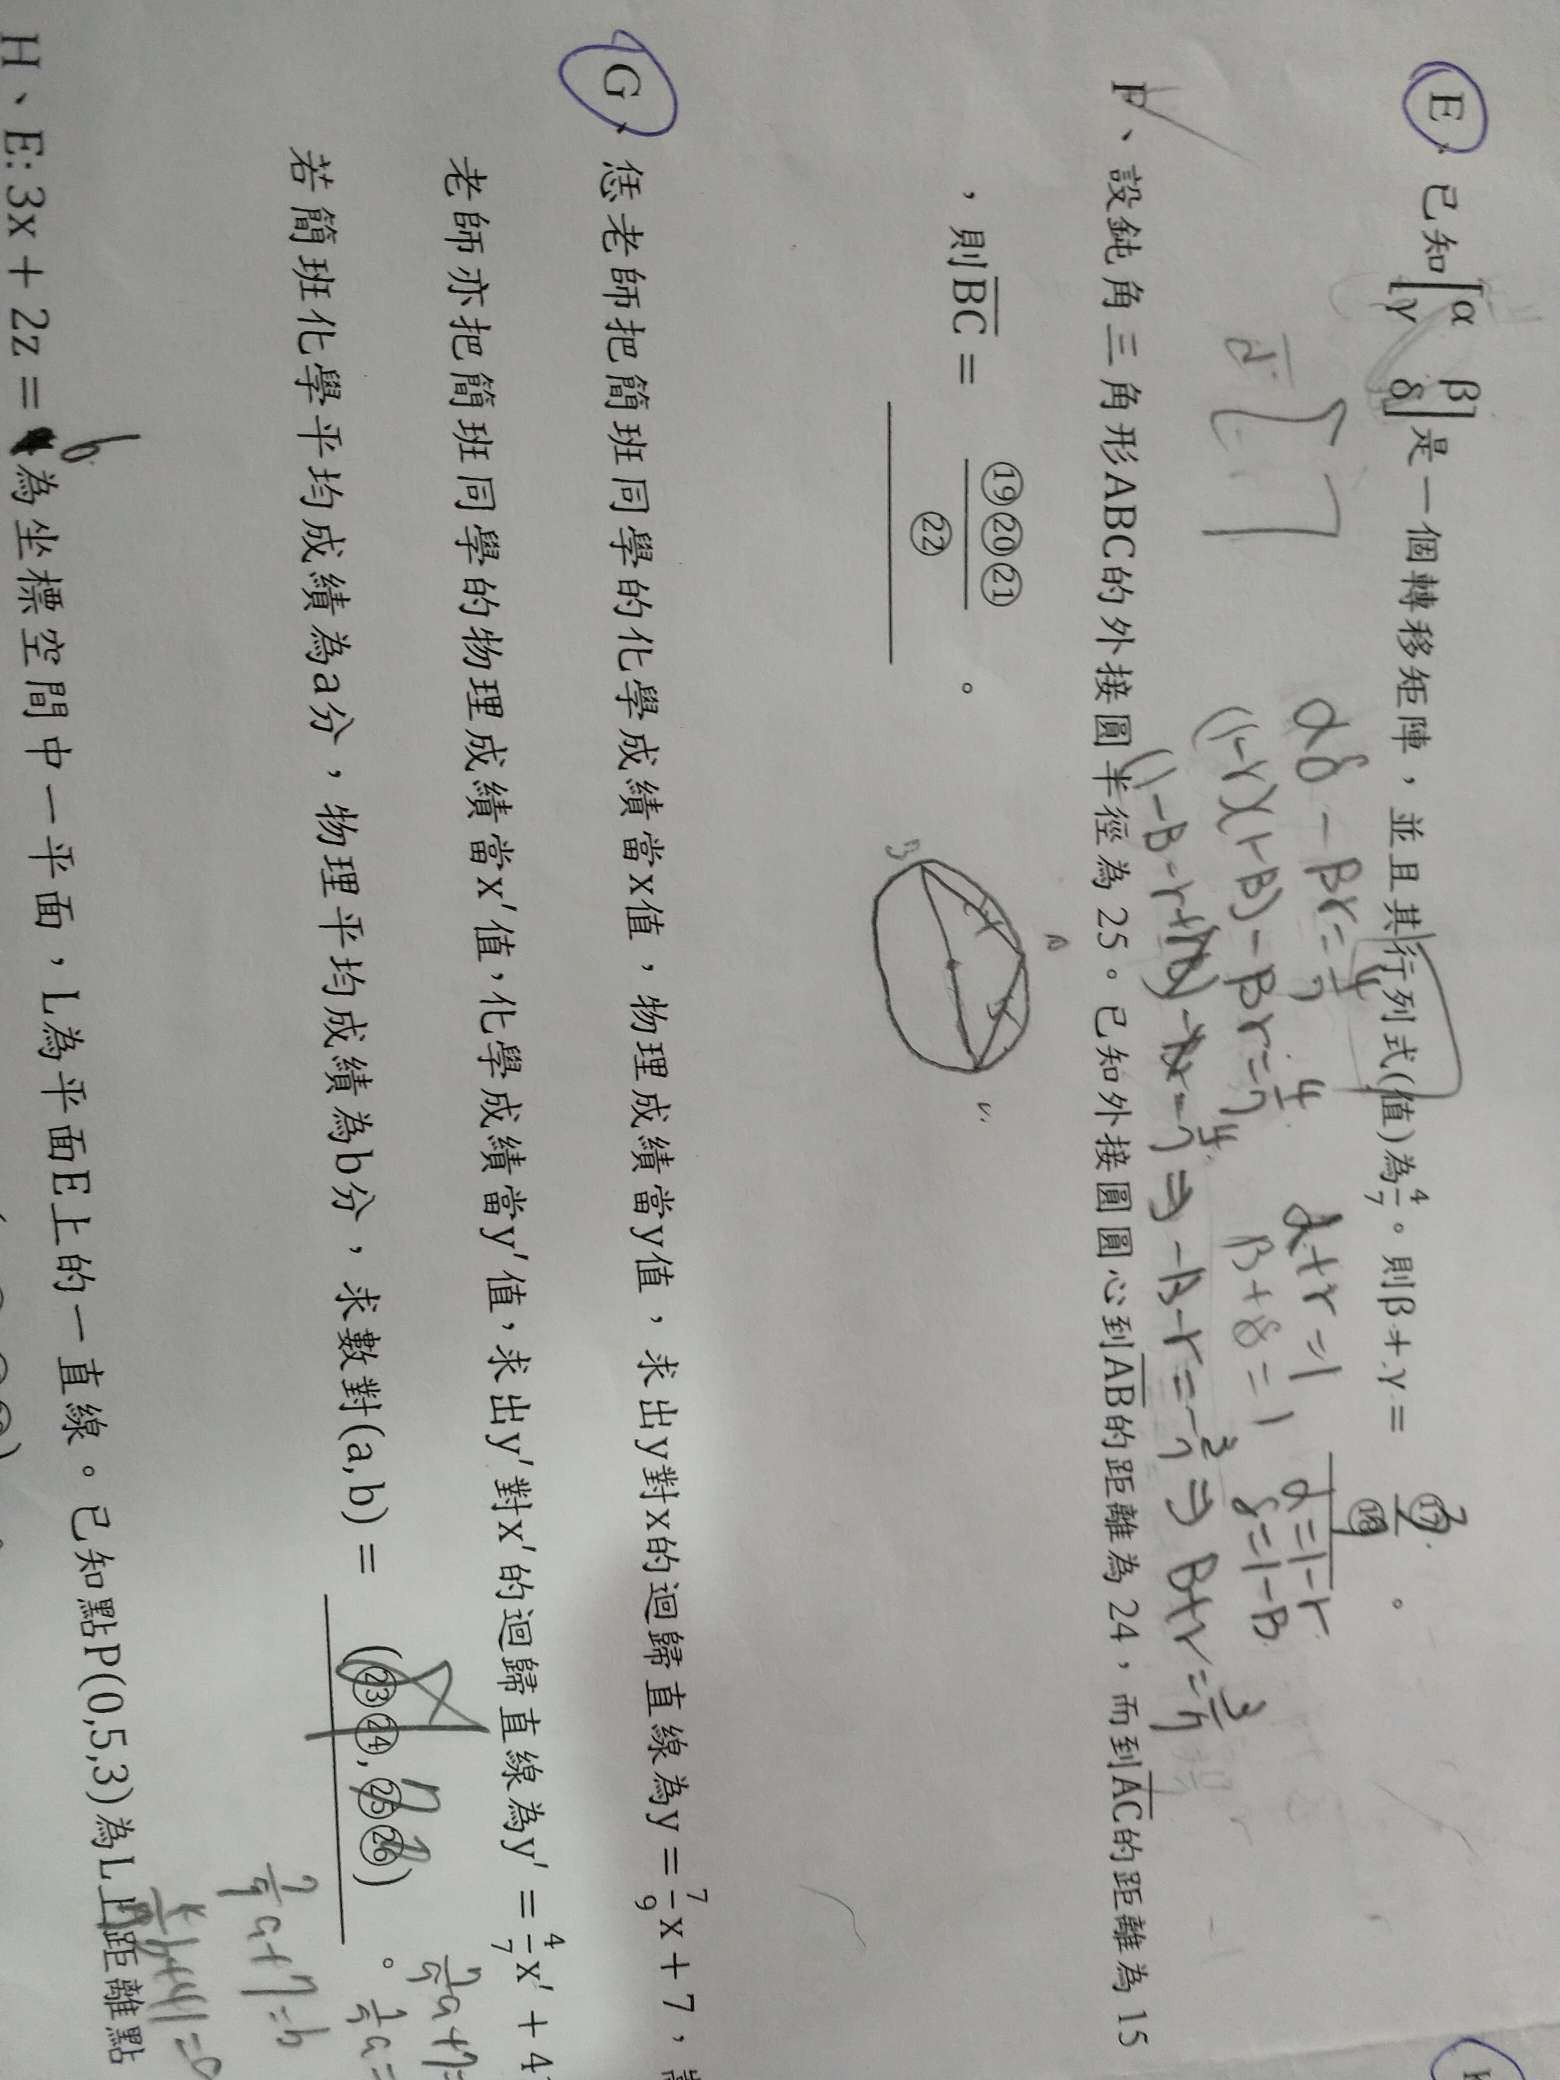 E、已知[α β
γ δ]是一個轉移矩陣，並且其行列式(值)為4/7。則β+γ= ⑰/⑱。
αδ-βr=4/7
α+r=1
α=1-r
(1-r)(1-B)-βr=4/7
β+δ=1
δ=1-B
⇒ -B-r=-3/7 ⇒ B+r=3/7
F、設鈍角三角形ABC的外接圓半徑為 25。已知外接圓圓心到AB的距離為 24，而到AC的距離為 15
，則BC= ⑲⑳㉑/㉒。
G、恁老師把簡班同學的化學成績當x值，物理成績當y值，求出y對x的迴歸直線為y=7/9x+7，
老師亦把簡班同學的物理成績當x′值，化學成績當y′值，求出y′對x′的迴歸直線為y′=4/7x′+4
若簡班化學平均成績為a分，物理平均成績為b分，求數對(a,b)= (㉓㉔,㉕㉖)。
7/9a+7=b
H、E:3x+2z=6為坐標空間中一平面，L為平面E上的一直線。已知點P(0,5,3)為L上距離點